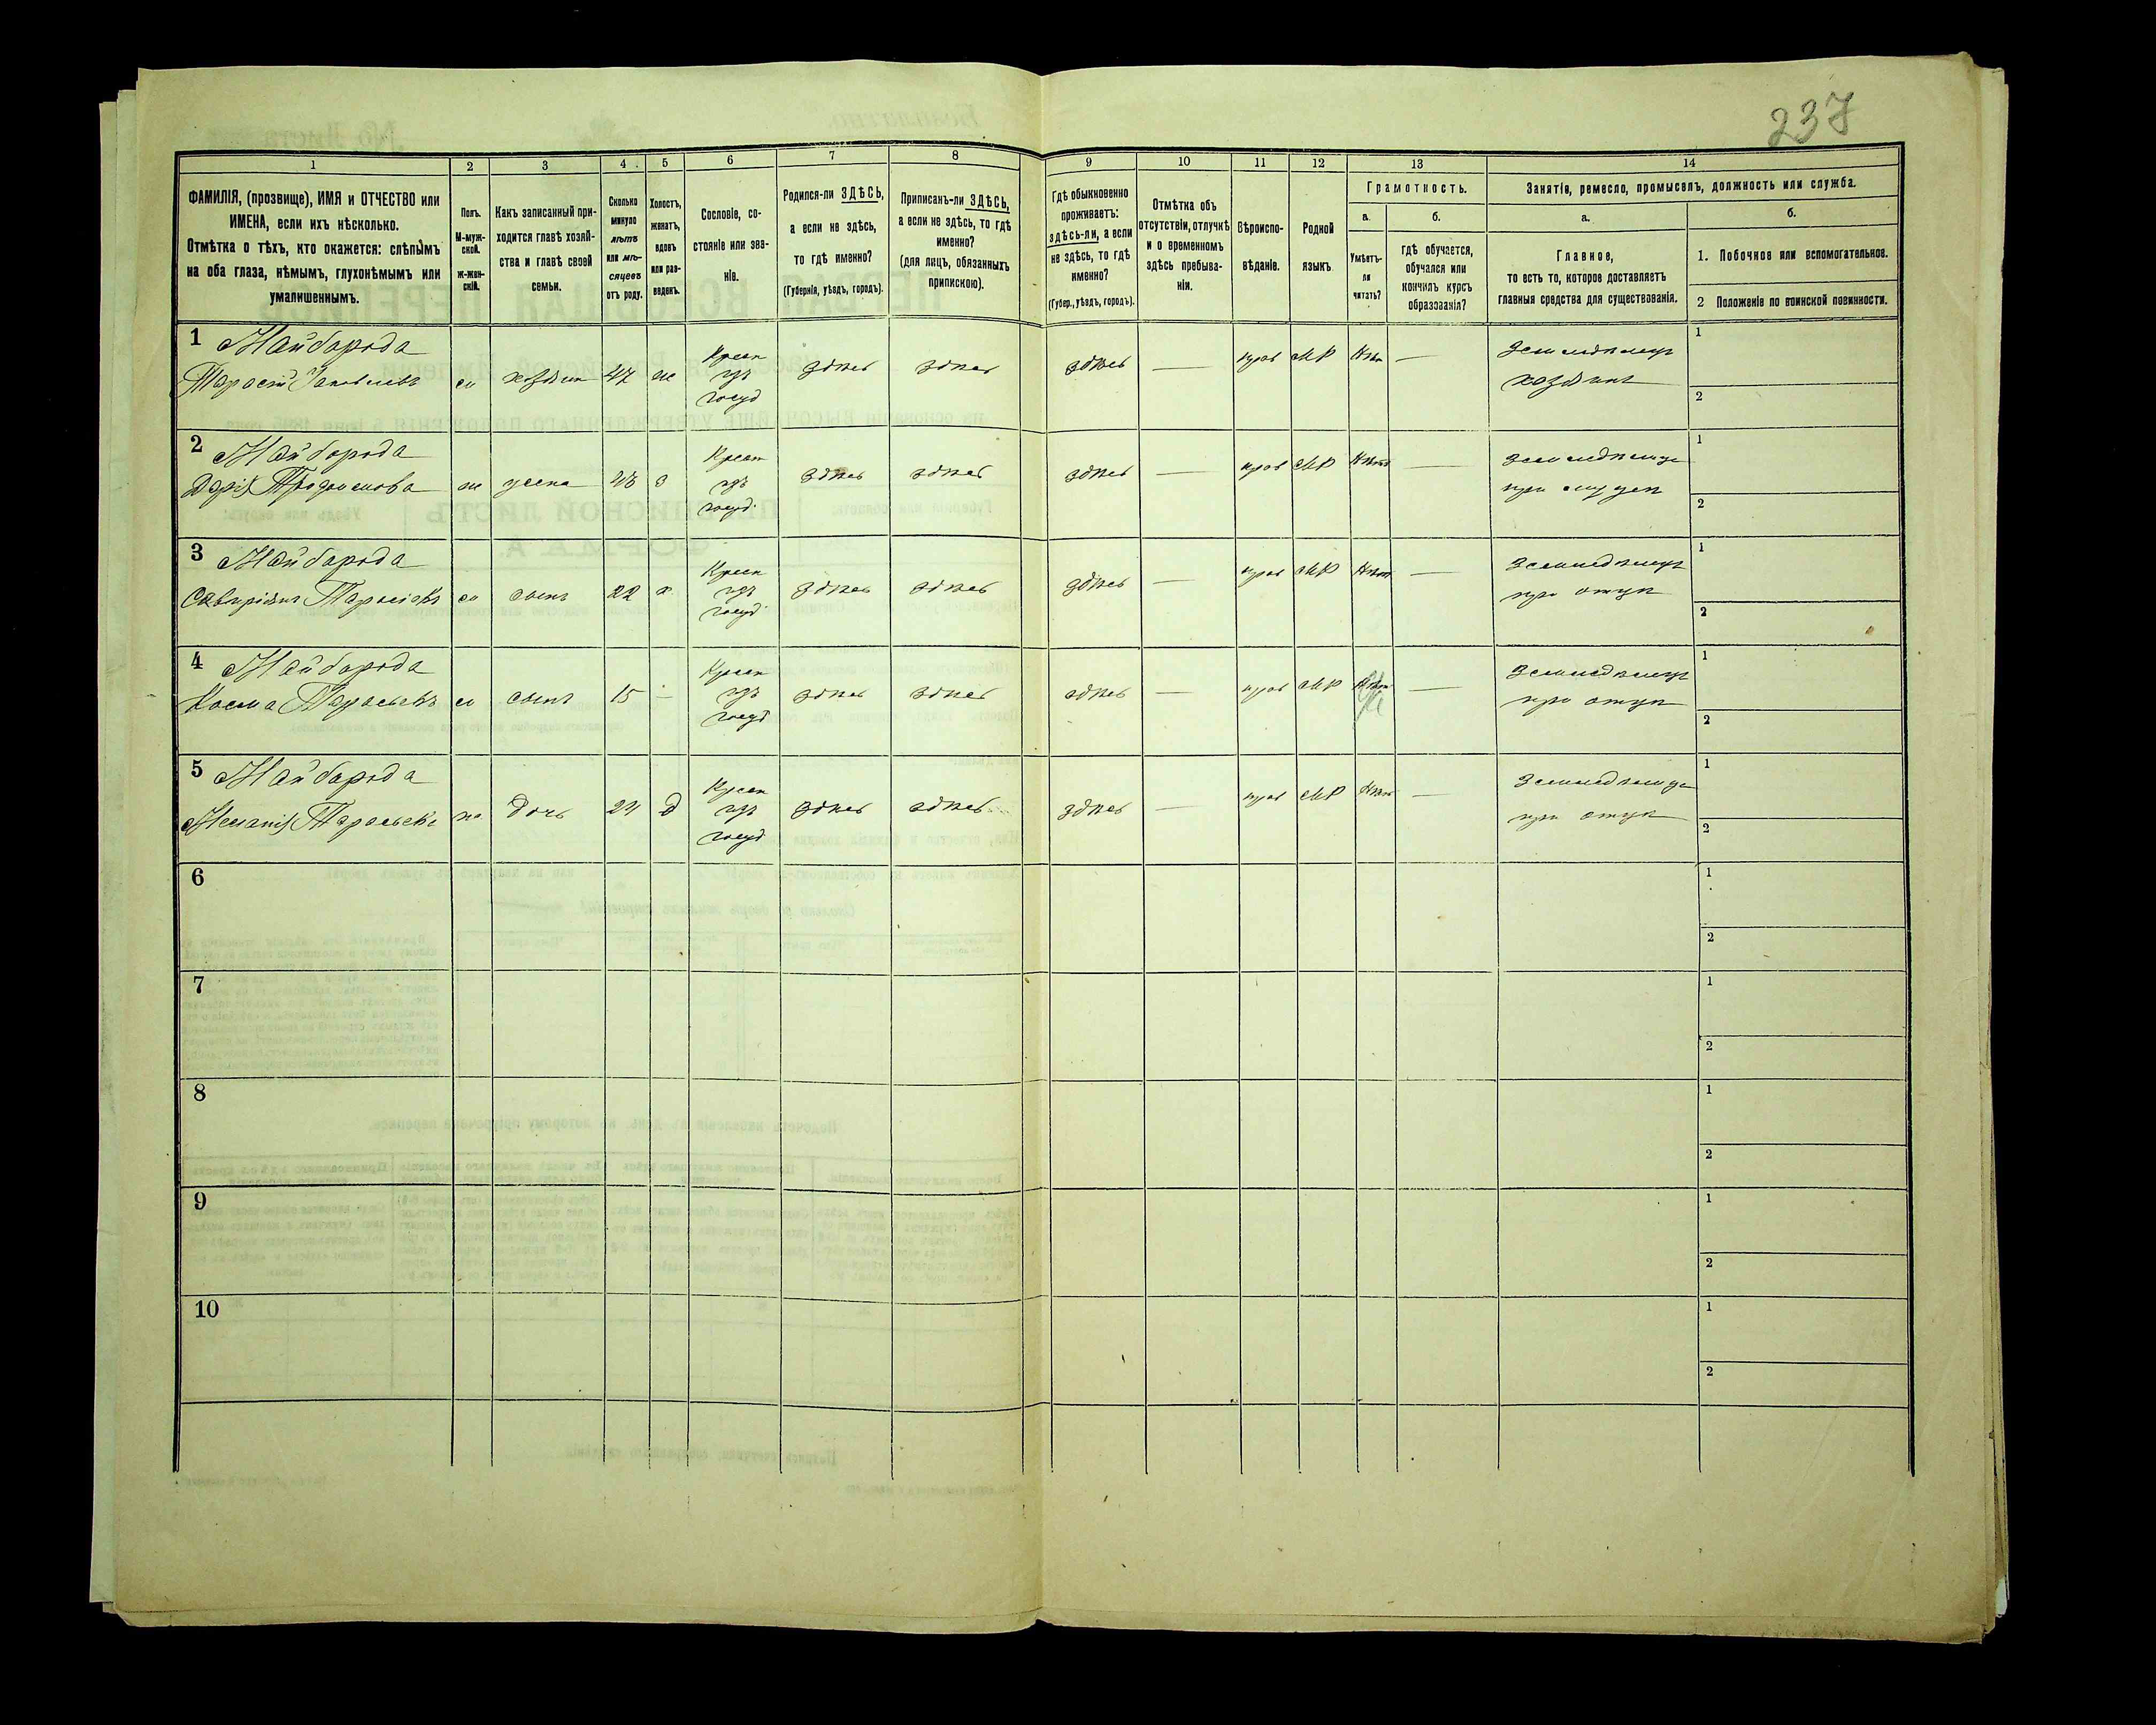 237
1 2 3 4 5 6 7 8 9 10 11 12 13 14
ФАМИЛІЯ, (прозвище), ИМЯ и ОТЧЕСТВО или
ИМЕНА, если ихъ нѣсколько.
Отмѣтка о тѣхъ, кто окажется: слѣпымъ
на оба глаза, нѣмымъ, глухонѣмымъ или
умалишеннымъ.
Полъ.
М-муж-
ской.
ж-жен-
скій.
Какъ записанный при-
ходится главѣ хозяй-
ства и главѣ своей
семьи.
Сколько
минуло
лѣтъ
или мѣ-
сяцевъ
отъ роду.
Холостъ,
женатъ,
вдовъ
или раз-
веденъ.
Сословіе, со-
стояніе или зва-
ніе.
Родился-ли ЗДѢСЬ,
а если не здѣсь,
то гдѣ именно?
(Губернія, уѣздъ, городъ).
Приписанъ-ли ЗДѢСЬ,
а если не здѣсь, то гдѣ
именно?
(для лицъ, обязанныхъ
припискою).
Гдѣ обыкновенно
проживаетъ:
здѣсь-ли, а если
не здѣсь, то гдѣ
именно?
(Губер., уѣздъ, городъ).
Отмѣтка объ
отсутствіи, отлучкѣ
и о временномъ
здѣсь пребыва-
ніи.
Вѣроиспо-
вѣданіе.
Родной
языкъ.
Грамотность.
а.
Умѣетъ-
ли
читать?
б.
гдѣ обучается,
обучался или
кончилъ курсъ
образованія?
Занятіе, ремесло, промыселъ, должность или служба.
а.
Главное,
то есть то, которое доставляетъ
главныя средства для существованія.
б.
1. Побочное или вспомогательное.
2 Положеніе по воинской повинности.
1 Майборода
Тарасій Яковлевъ м хозяин 47 ж Крест изъ госуд здѣсь здѣсь здѣсь — прав МР Нѣт — Земледѣлецъ хозяинъ 1 2
2 Майборода
Дарія жена 43 з Крест изъ госуд здѣсь здѣсь здѣсь — прав МР Нѣт — при 1 2
3 Майборода
м сынъ 22 х Крест изъ госуд здѣсь здѣсь здѣсь — прав МР Нѣт — Земледѣлецъ при отцѣ 1 2
4 Майборода
Косма Тарасьевъ м сынъ 15 – Крест изъ госуд здѣсь здѣсь здѣсь — прав МР — Земледѣлецъ при отцѣ 1 2
5 Майборода
дочь Д Крест изъ госуд здѣсь здѣсь здѣсь — прав МР Нѣт — при отцѣ 1 2
6 1 2
7 1 2
8 1 2
9 1 2
10 1 2